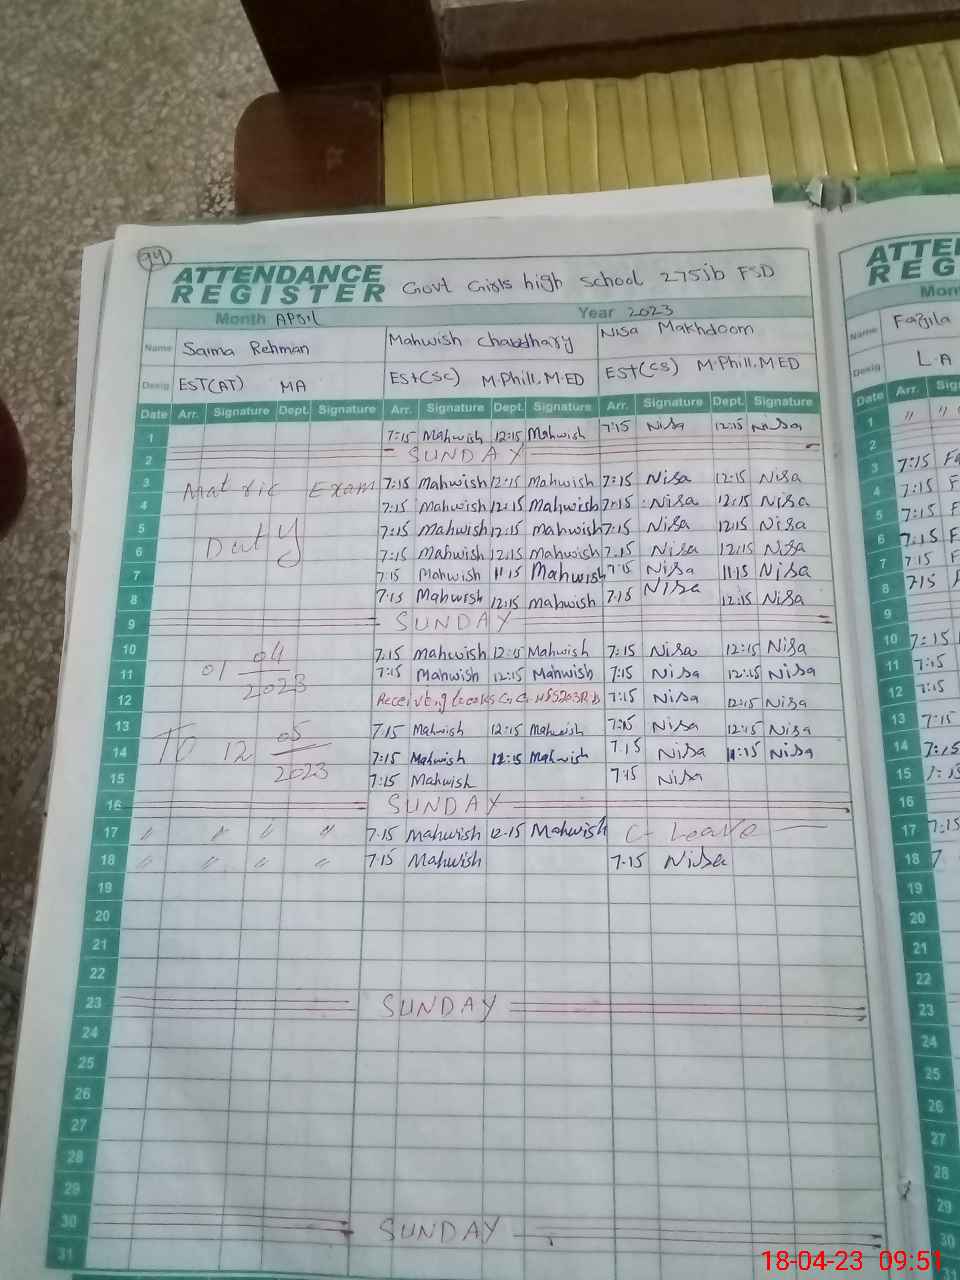 94
ATTENDANCE
REGISTER
Govt Girls high School 275jb FSD
Month April Year 2023
Name Saima Rehman Mahwish chaudhary Nisa Makhdoom
Desig EST(AT) MA Est(SC) M.Phill, M.ED Est(CS) M.Phill, M.ED
Date Arr. Signature Dept. Signature Arr. Signature Dept. Signature Arr. Signature Dept. Signature
1 7:15 Mahwish 12:15 Mahwish 7:15 Nisa 12:15 Nisa
2 SUNDAY
3 Matric Exam 7:15 Mahwish 12:15 Mahwish 7:15 Nisa 12:15 Nisa
4 7:15 Mahwish 12:15 Mahwish 7:15 Nisa 12:15 Nisa
5 Duty 7:15 Mahwish 12:15 Mahwish 7:15 Nisa 12:15 Nisa
6 7:15 Mahwish 12:15 Mahwish 7:15 Nisa 12:15 Nisa
7 7:15 Mahwish 11:15 Mahwish 7:15 Nisa 11:15 Nisa
8 7:15 Mahwish 12:15 Mahwish 7:15 Nisa 12:15 Nisa
9 SUNDAY
10 7:15 Mahwish 12:15 Mahwish 7:15 Nisa 12:15 Nisa
11 01 04 2023 7:15 Mahwish 12:15 Mahwish 7:15 Nisa 12:15 Nisa
12 7:15 Nisa 12:15 Nisa
13 7:15 Mahwish 12:15 Mahwish 7:15 Nisa 12:15 Nisa
14 To 12 05 2023 7:15 Mahwish 12:15 Mahwish 7:15 Nisa 11:15 Nisa
15 7:15 Mahwish 7:15 Nisa
16 SUNDAY
17 〃 〃 〃 〃 7:15 Mahwish 12:15 Mahwish C-Leave
18 〃 〃 〃 〃 7:15 Mahwish 7:15 Nisa
19
20
21
22
23 SUNDAY
24
25
26
27
28
29
30 SUNDAY
31
ATTE
REG
Mon
Name Fazila
Desig L.A
Date Arr.
1 〃 〃
2
3 7:15
4 7:15 F
5 7:15 F
6 7:15 F
7 7:15 F
8 7:15
9
10 7:15
11 7:15
12 7:15
13 7:15
14 7:15
15
16
17 7:15
18 7
19
20
21
22
23
24
25
26
27
28
29
30
31
18-04-23 09:51